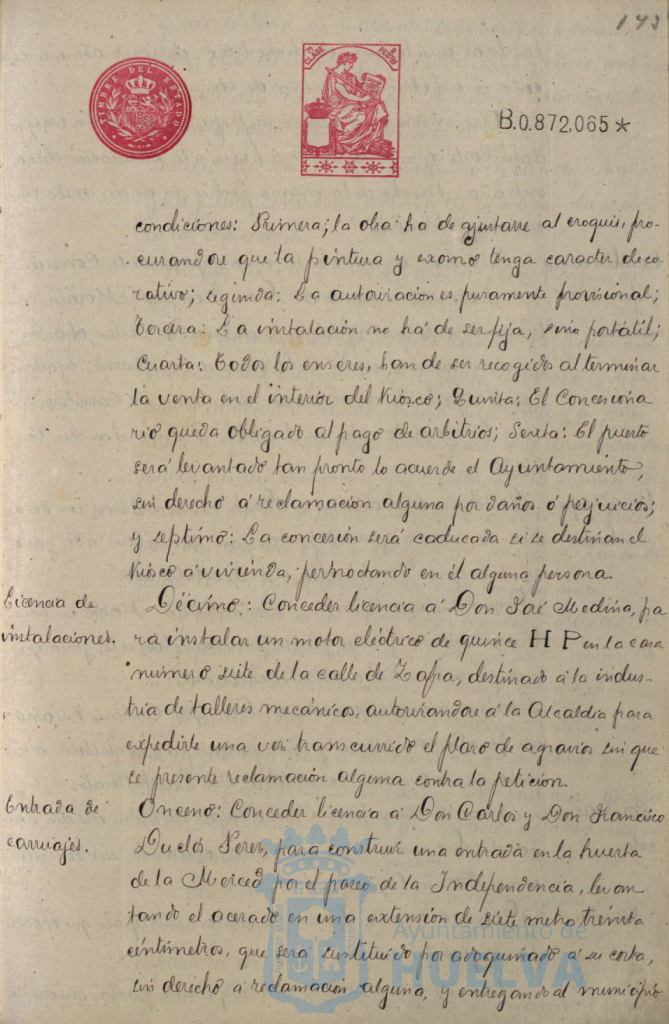 143
TIMBRE DEL ESTADO
CLASE
B.0.872,065*
condiciones: Primera; la obra ha de ajustarse al croquis, pro-
curandose que la pintura y exorno tenga caracter deco-
rativo; segunda: La autorización es puramente provisional;
Tercera: La instalación no há de ser fija, sino portátil;
Cuarta: Todos los enseres, han de ser recogidos al terminar
la venta en el interior del Kiosco; Quinta: El Concesiona
rio queda obligado al pago de arbitrios; Sexta: El puesto
será levantado tan pronto lo acuerde el Ayuntamiento,
sin derecho á reclamación alguna por daños ó perjuicios;
y septimo: La concesión será caducada si se destina el
Kiosco á vivienda, pernoctando en él alguna persona.
Licencia de
instalaciones.
Décimo: Conceder licencia á Don José Medina, pa
ra instalar un motor eléctrico de quince HP en la casa
numero siete de la calle de Zafra, destinado á la indus-
tria de talleres mecánicos, autorizandose á la Alcaldía para
expedirle una vez transcurrido el plazo de agravios sin que
se presente reclamación alguna contra la petición.
Entrada de
carruajes.
Onceno: Conceder licencia á Don Carlos y Don Francisco
Duclós Perez, para construir una entrada en la huerta
de la Merced por el paseo de la Independencia, levan
tando el acerado en una extensión de siete metros treinta
céntimetros, que será sustituido por adoquinado á su costa,
sin derecho á reclamación alguna, y entregando al municipio
Ayuntamiento de
HUELVA